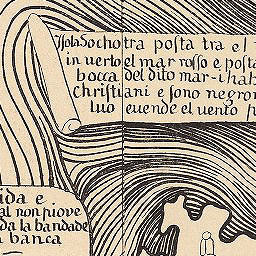 Isola Sochotra posta tra el
in uerlo el mar rosso e posta
bocca del dito mar – i hab
christiani e sono negron
luo euende el uento
ida e
al non piove
da la bandade
banca